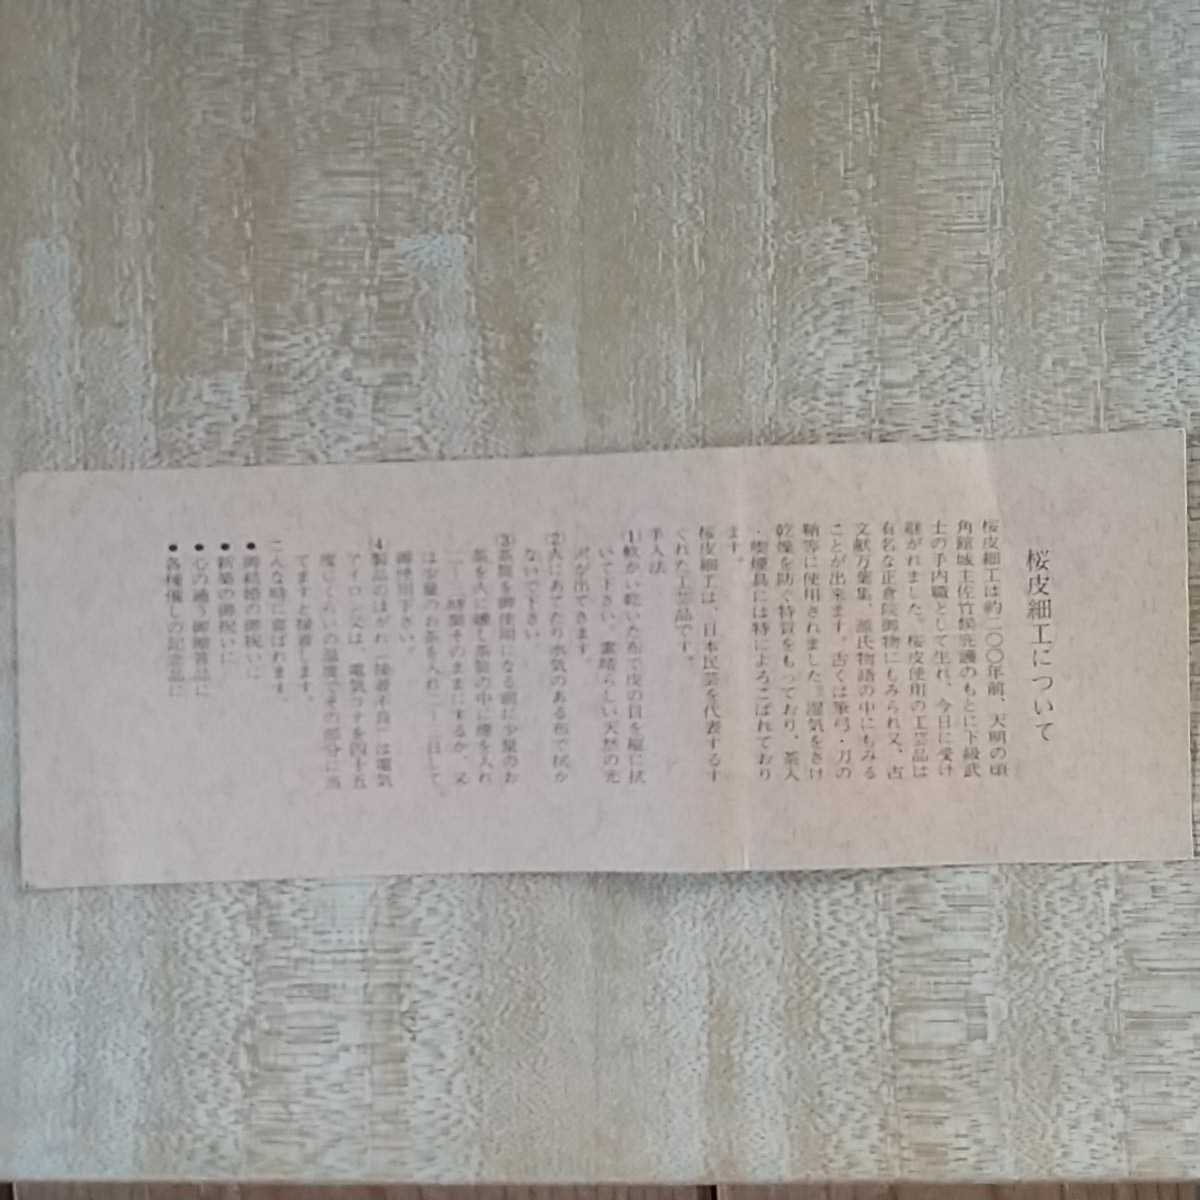 桜皮細工について
桜皮細工は約二〇〇年前、天明の頃
角館城主佐竹候庇護のもとに下級武
士の手内職として生れ、今日に受け
継がれました。桜皮使用の工芸品は
有名な正倉院御物にもみられ又、古
文献万葉集、源氏物語の中にもみる
ことが出来ます。古くは筆弓・刀の
鞘等に使用されました。湿気をさけ
乾燥を防ぐ特質をもっており、茶人
・喫煙具には特によろこばれており
ます。
桜皮細工は、日本民芸を代表するす
ぐれた工芸品です。
手入法
①軟かい乾いた布で皮の目を縦に拭
いて下さい。素晴らしい天然の光
沢が出てきます。
②火にあてたり水気のある布で拭か
ないで下さい。
③茶筒を御使用になる前に少量のお
茶を火に燻し茶筒の中に煙を入れ
一、二時間そのままにするか、又
は少量のお茶を入れ一～二日して、
御使用下さい。
④製品のはがれ（接着不良）は電気
アイロン又は、電気ゴテを四十五
度くらいの温度でその部分に当
てますと接着します。
こんな時に喜ばれます。
●御結婚の御祝いに
●新築の御祝いに
●心の通う御贈答品に
●各種催しの記念品に